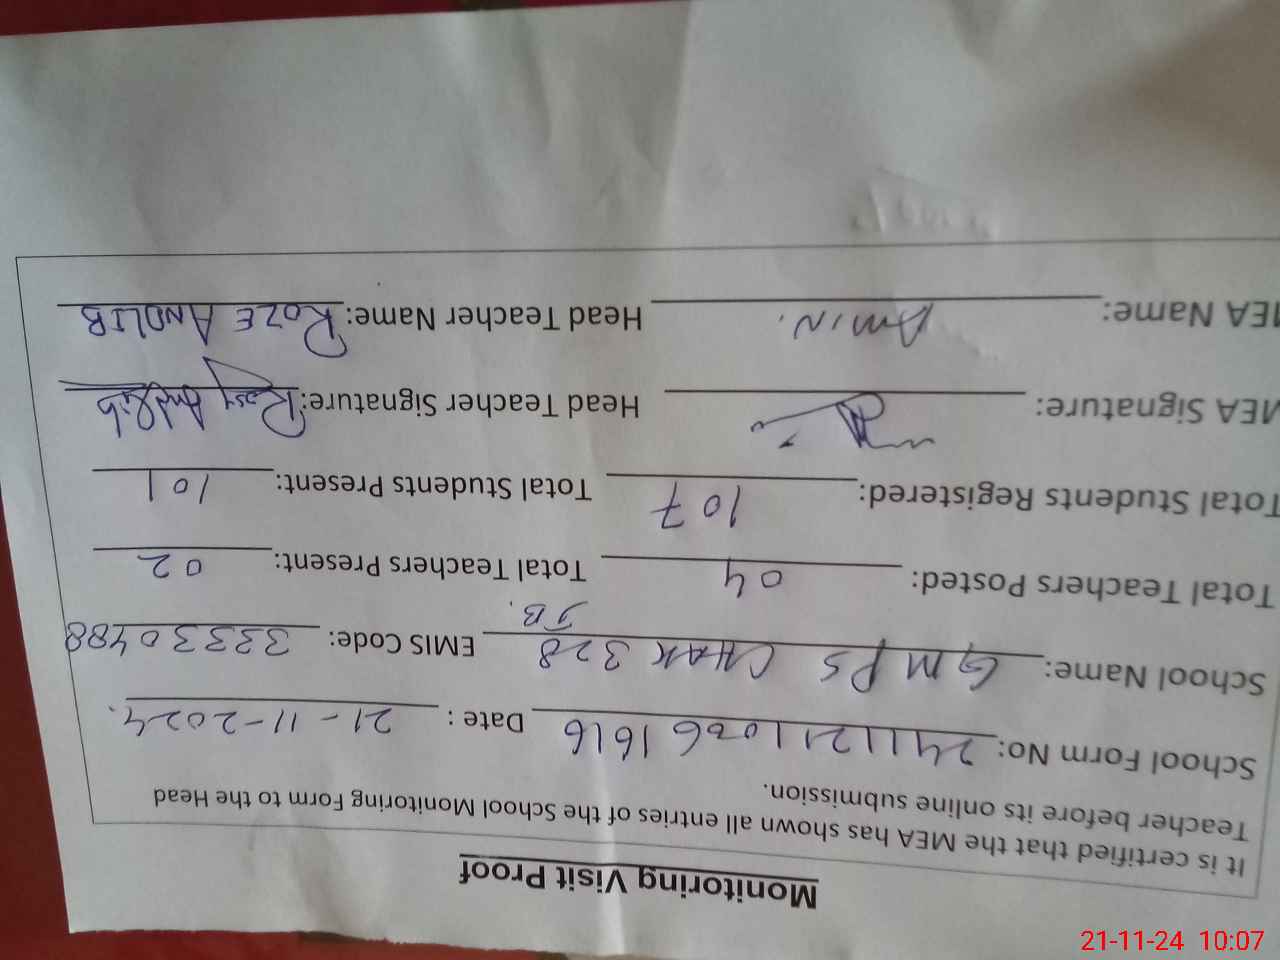 Monitoring Visit Proof
It is certified that the MEA has shown all entries of the School Monitoring Form to the Head
Teacher before its online submission.
School Form No: 2411211006 1616 Date : 21-11-2024.
School Name: GMPS CHAK 328 JB. EMIS Code: 33330488
Total Teachers Posted: 04 Total Teachers Present: 02
Total Students Registered: 107 Total Students Present: 101
MEA Signature: Head Teacher Signature: Rosy Andlib
MEA Name: AMIN. Head Teacher Name: ROZE ANDLIB
21-11-24 10:07